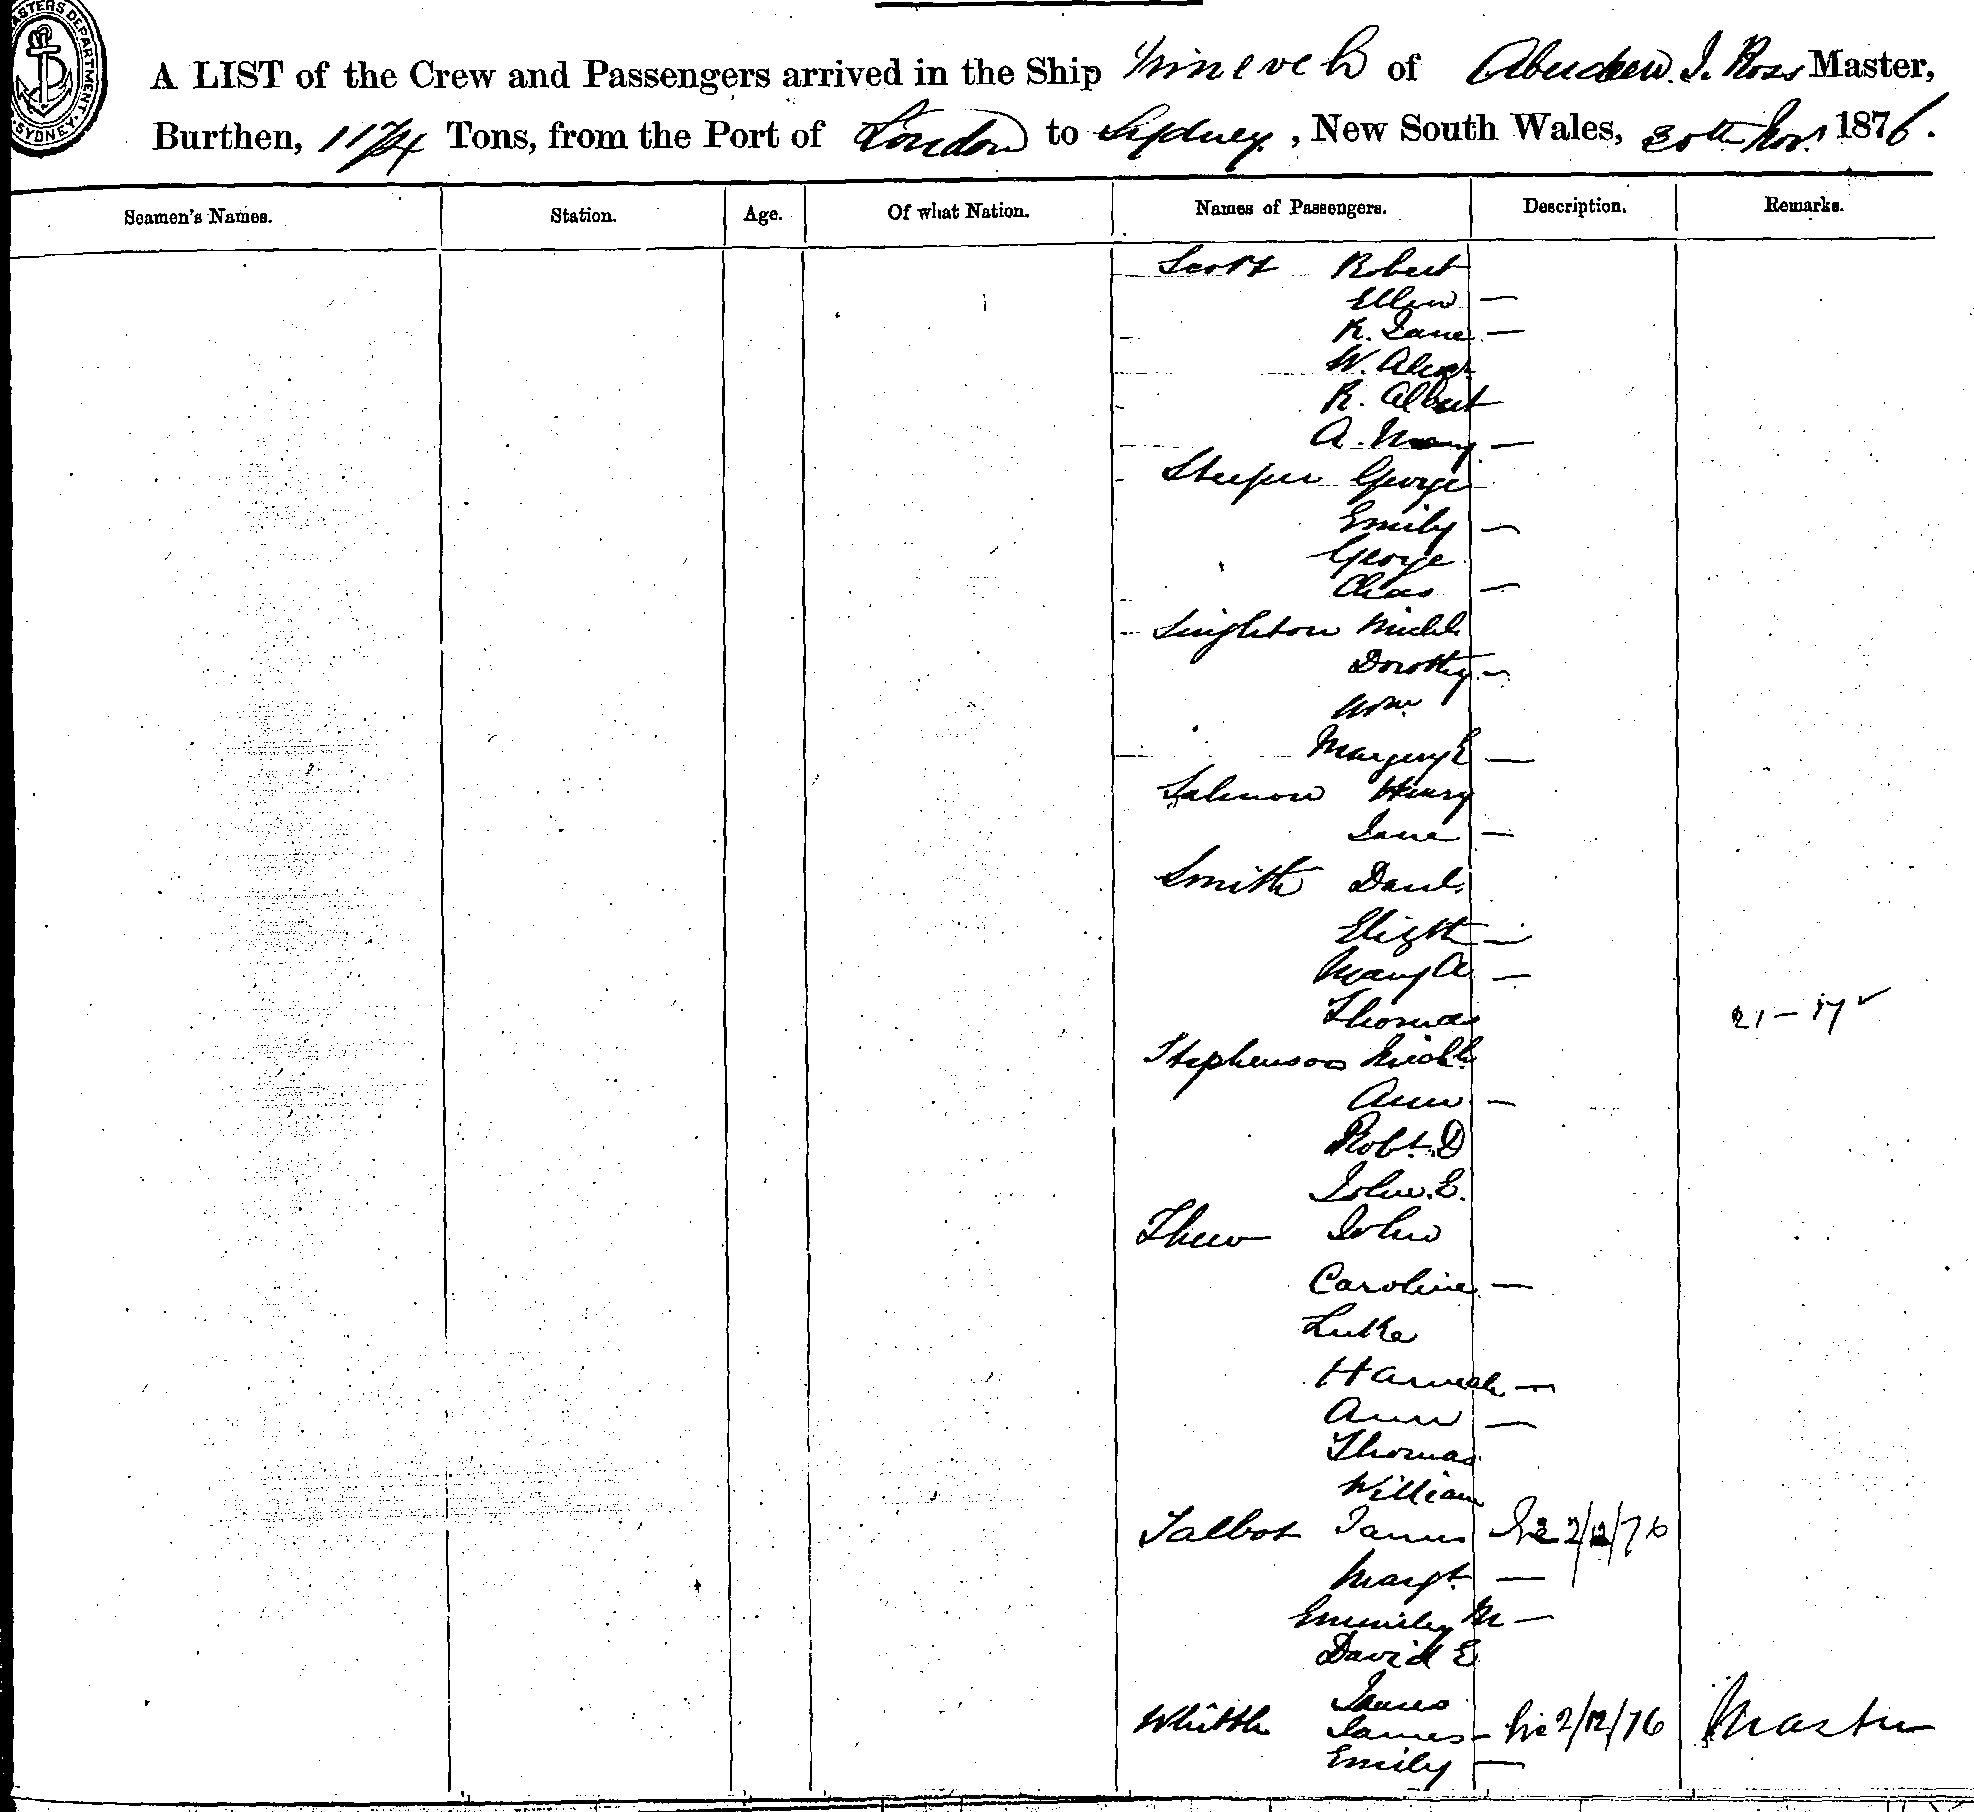 MASTERS DEPARTMENT SYDNEY
A LIST of the Crew and Passengers arrived in the Ship Nineveh of Aberdeen. J. Ross Master,
Burthen, 1174 Tons, from the Port of London to Sydney, New South Wales, 30th Nov. 1876.
Seamen's Names. Station. Age. Of what Nation. Names of Passengers. Description. Remarks.
Scott Robert
Ellen —
R. Jane —
W. Alexr
R. Albert
A. Mary —
George
Emily —
George
Chas —
Singleton Michl
Dorothy —
Wm
Margery E —
Salmon Henry
Jane —
Smith Danl.
Elizth —
Mary A —
Thomas
21 – 17 ✓
Stephenson Michl
Ann —
Robt. D
John. E.
Thew John
Caroline —
Luke
Hannah —
Ann —
Thomas
William
Talbot James 2/12/76
Margt. —
Emmiley M —
David E
James
Whittle James – 2/12/76 Master
Emily —